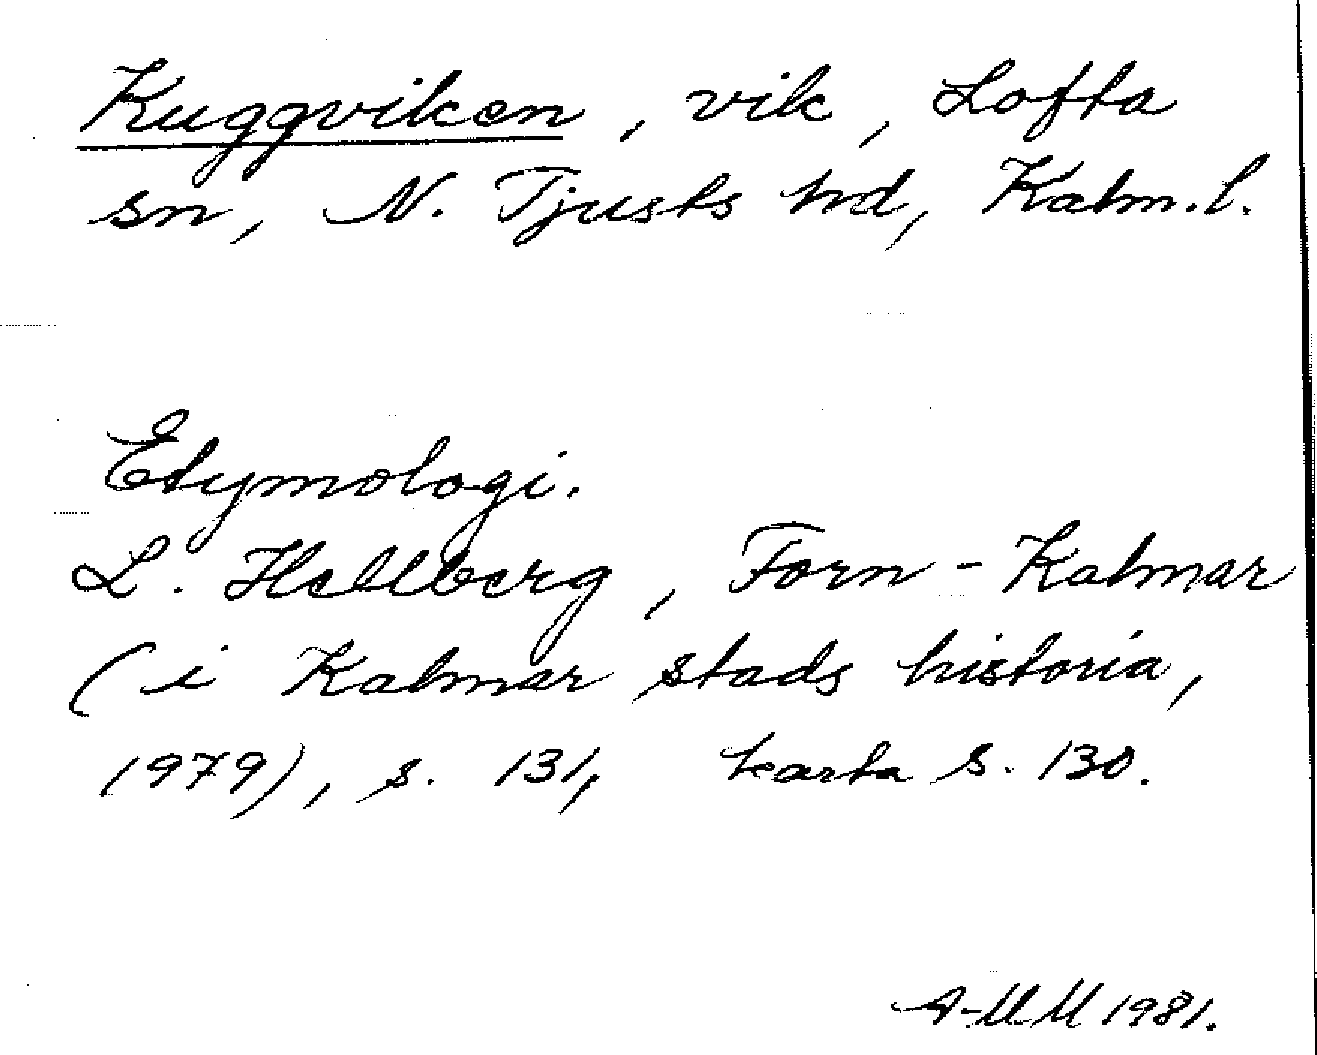 Kuggviken, vik, Lofta
sn, N. Tjusts hd, Kalm.l.
Etymologi.
L. Hellberg, Forn-Kalmar
(i Kalmar stads historia,
1979), s. 131, karta s. 130.
A-MM 1981.